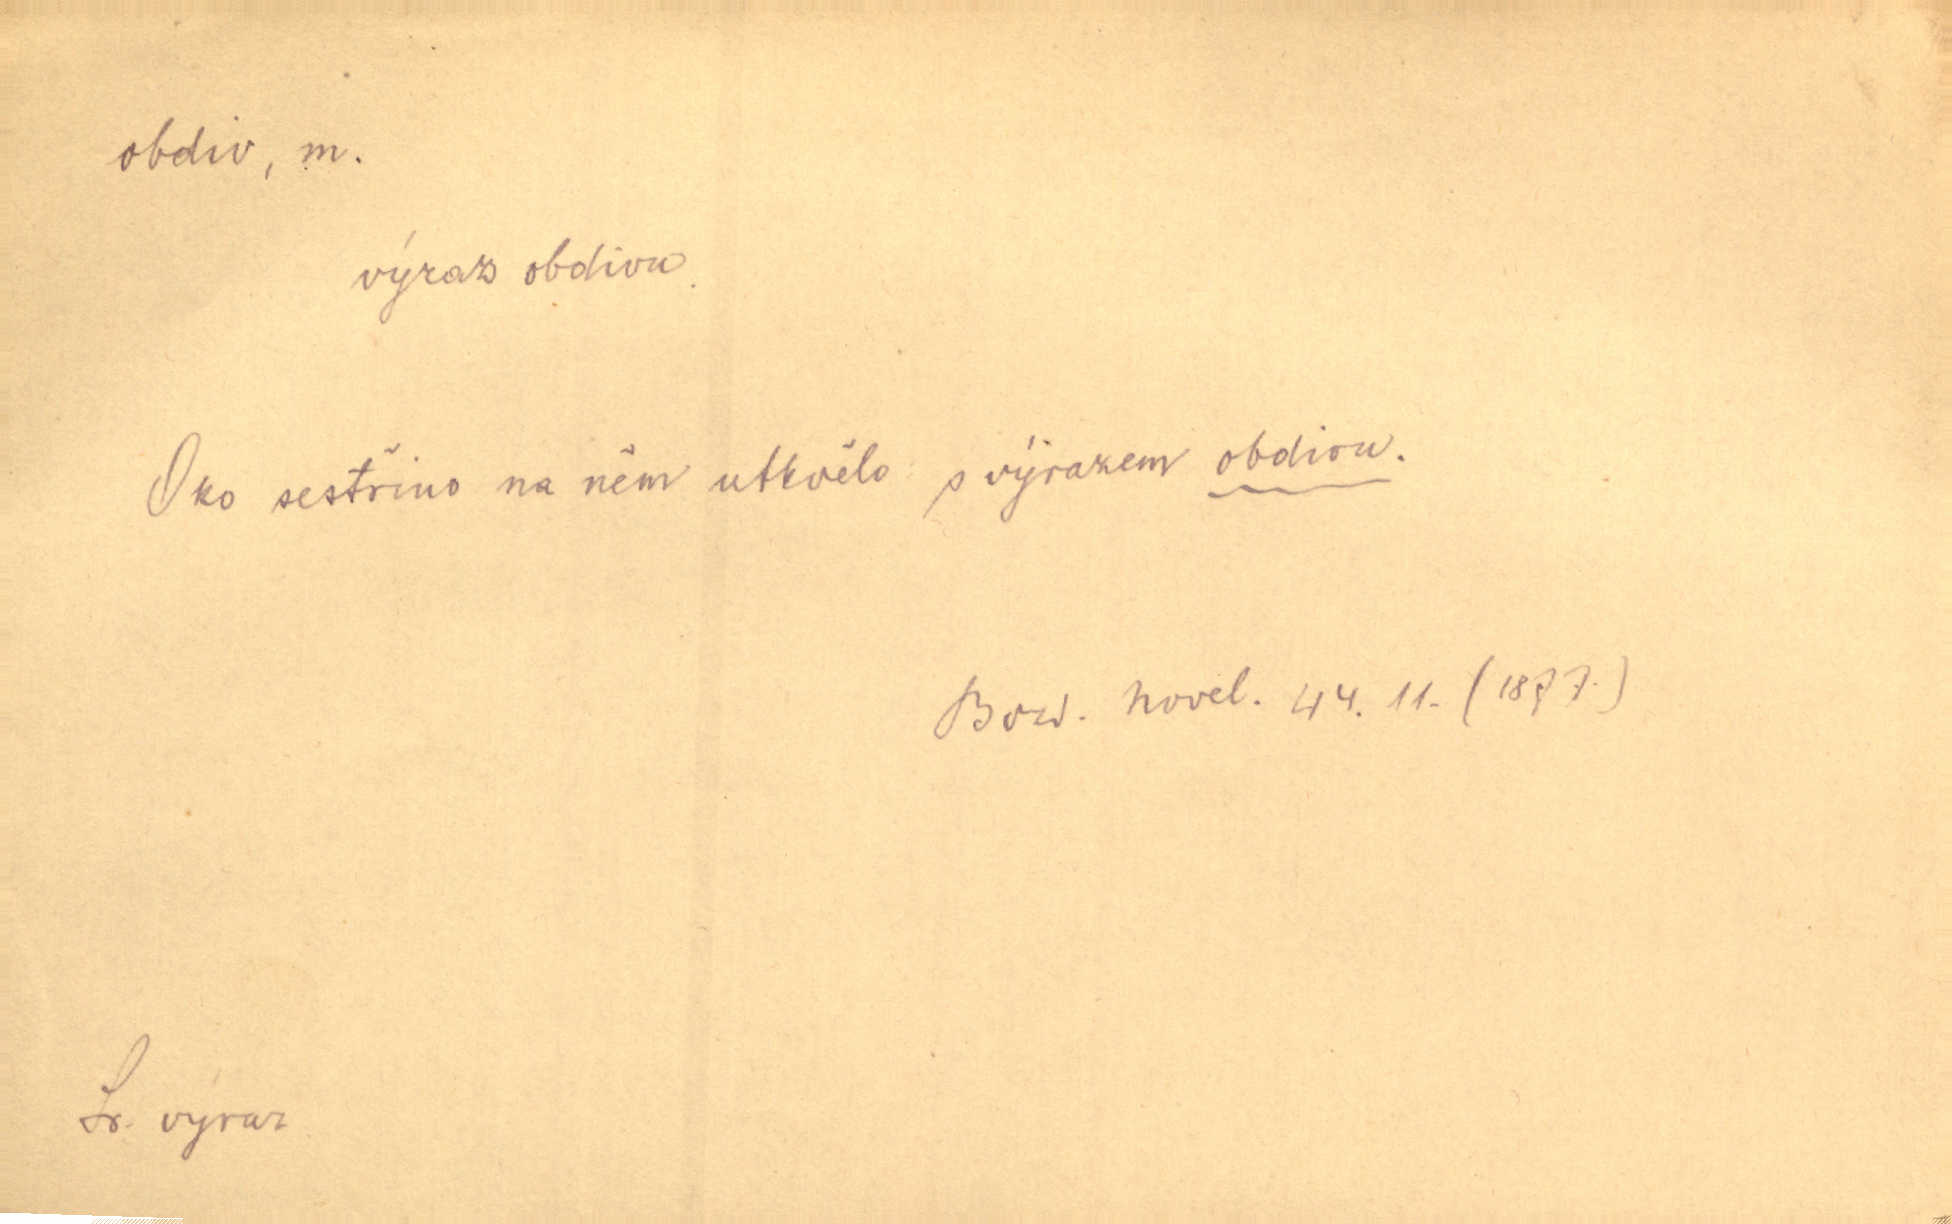 obdiv, m.
výraz obdivu.
Oko sestřino na něm utkvělo s výrazem obdivu.
novel. 44. 11. (1877.)
Sr. výraz